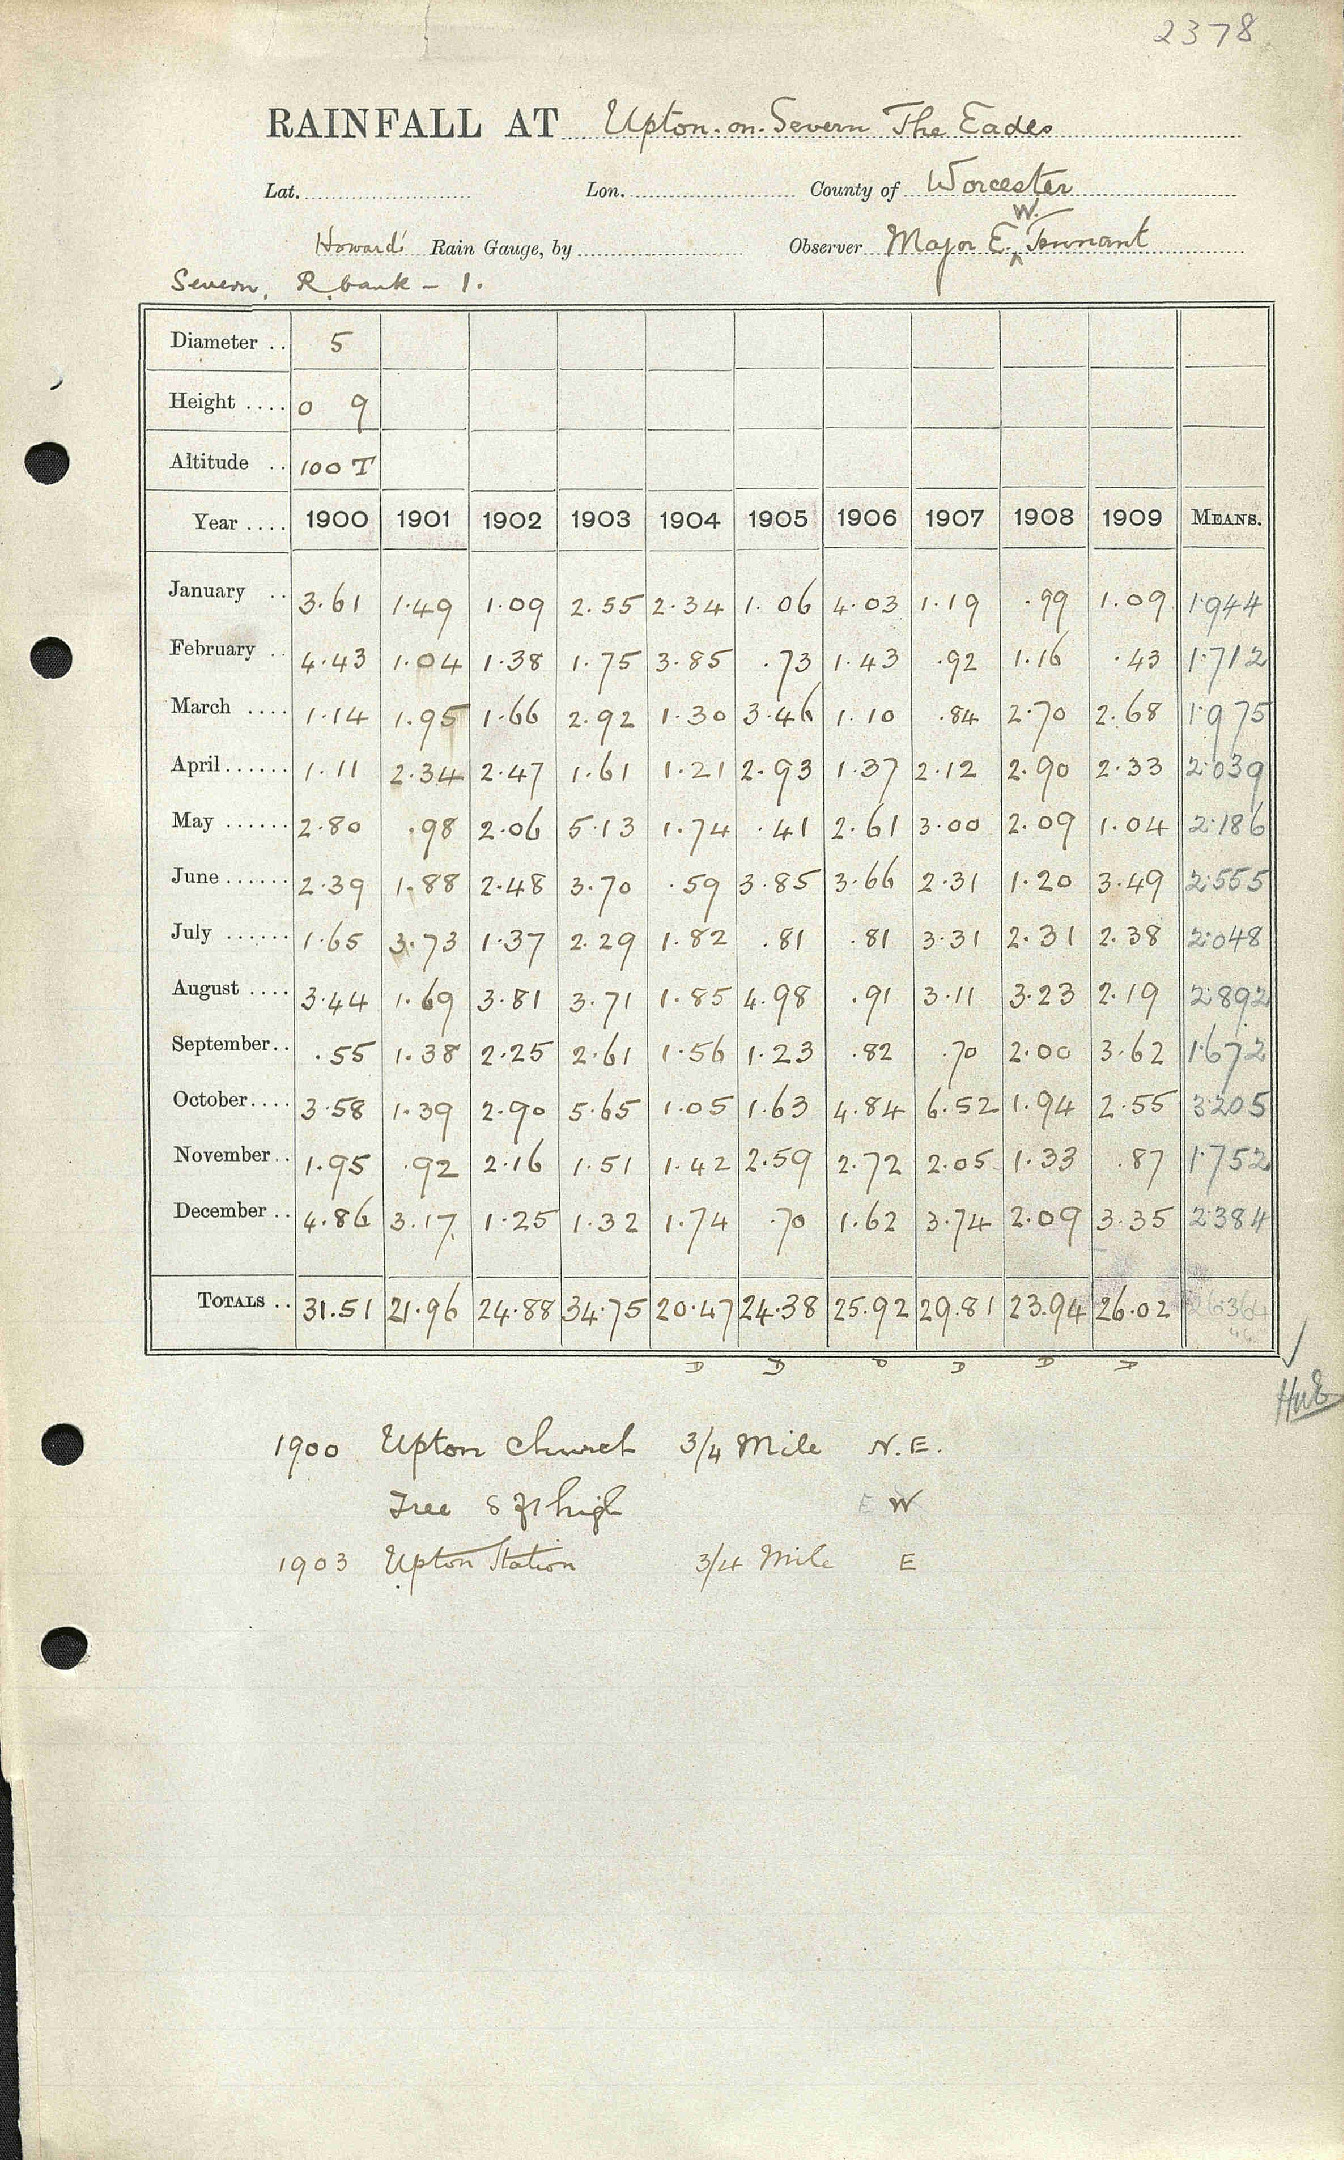 2378
RAINFALL AT Upton-on-Severn The Eades
Lat. Lon. County of Worcester
Howard's Rain Gauge, by Observer Major E. W. Tennant
Severn, R bank - 1.
Diameter .. 5
Height .... 0 9
Altitude .. 100 T
Year .... 1900 1901 1902 1903 1904 1905 1906 1907 1908 1909 MEANS.
January .. 3.61 1.49 1.09 2.55 2.34 1.06 4.03 1.19 .99 1.09 1.944
February .. 4.43 1.04 1.38 1.75 3.85 .73 1.43 .92 1.16 .43 1.712
March .... 1.14 1.95 1.66 2.92 1.30 3.46 1.10 .84 2.70 2.68 1.975
April...... 1.11 2.34 2.47 1.61 1.21 2.93 1.37 2.12 2.90 2.33 2.039
May ...... 2.80 .98 2.06 5.13 1.74 .41 2.61 3.00 2.09 1.04 2.186
June...... 2.39 1.88 2.48 3.70 .59 3.85 3.66 2.31 1.20 3.49 2.555
July ...... 1.65 3.73 1.37 2.29 1.82 .81 .81 3.31 2.31 2.38 2.048
August .... 3.44 1.69 3.81 3.71 1.85 4.98 .91 3.11 3.23 2.19 2.892
September.. .55 1.38 2.25 2.61 1.56 1.23 .82 .70 2.00 3.62 1.672
October.... 3.58 1.39 2.90 5.65 1.05 1.63 4.84 6.52 1.94 2.55 3.205
November.. 1.95 .92 2.16 1.51 1.42 2.59 2.72 2.05 1.33 .87 1.752
December .. 4.86 3.17 1.25 1.32 1.74 .70 1.62 3.74 2.09 3.35 2.384
TOTALS .. 31.51 21.96 24.88 34.75 20.47 24.38 25.92 29.81 23.94 26.02 26.364
D D D D D D
1900 Upton Church 3/4 Mile N.E.
Tree 8 ft high E W
1903 Upton Station 3/4 Mile E